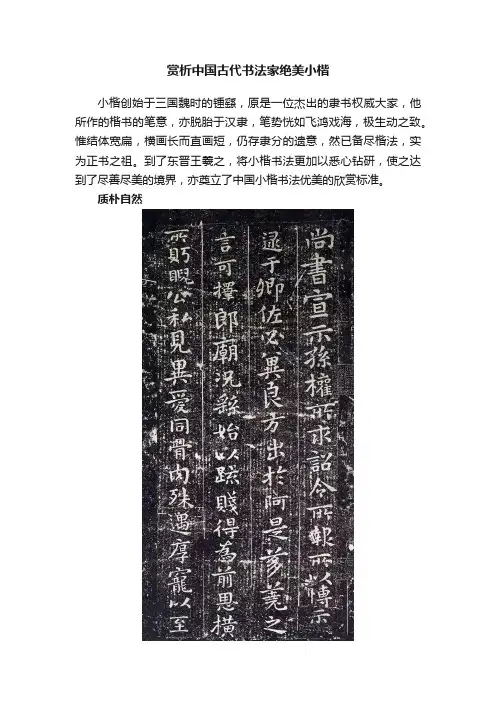 赏析中国古代书法家绝美小楷
小楷创始于三国魏时的锺繇，原是一位杰出的隶书权威大家，他
所作的楷书的笔意，亦脱胎于汉隶，笔势恍如飞鸿戏海，极生动之致。
惟结体宽扁，横画长而直画短，仍存隶分的遗意，然已备尽楷法，实
为正书之祖。到了东晋王羲之，将小楷书法更加以悉心钻研，使之达
到了尽善尽美的境界，亦奠立了中国小楷书法优美的欣赏标准。
质朴自然
尚書宣示孫權所求詔令所報所以博示
逮于卿佐必異良方出於阿是芻蕘之
言可擇郎廟況繇始以疏賤得為前恩橫
所眄睨公私見異愛同骨肉殊遇厚寵以至